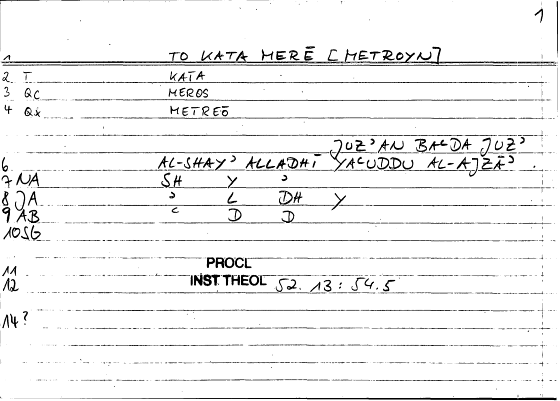 1
1 TO KATA MERĒ [METROYN]
2 T KATA
3 QC MEROS
4 Qx METREŌ
JUZʾAN BAʿDA JUZʾ
6 AL-SHAYʾ ALLADHĪ YAʿUDDU AL-AJZĀʾ .
7 NA SH Y ʾ
8 JA ʾ L DH Y
9 AB ʿ D D
10 SG
11 PROCL
12 INST THEOL 52.13:54.5
14?